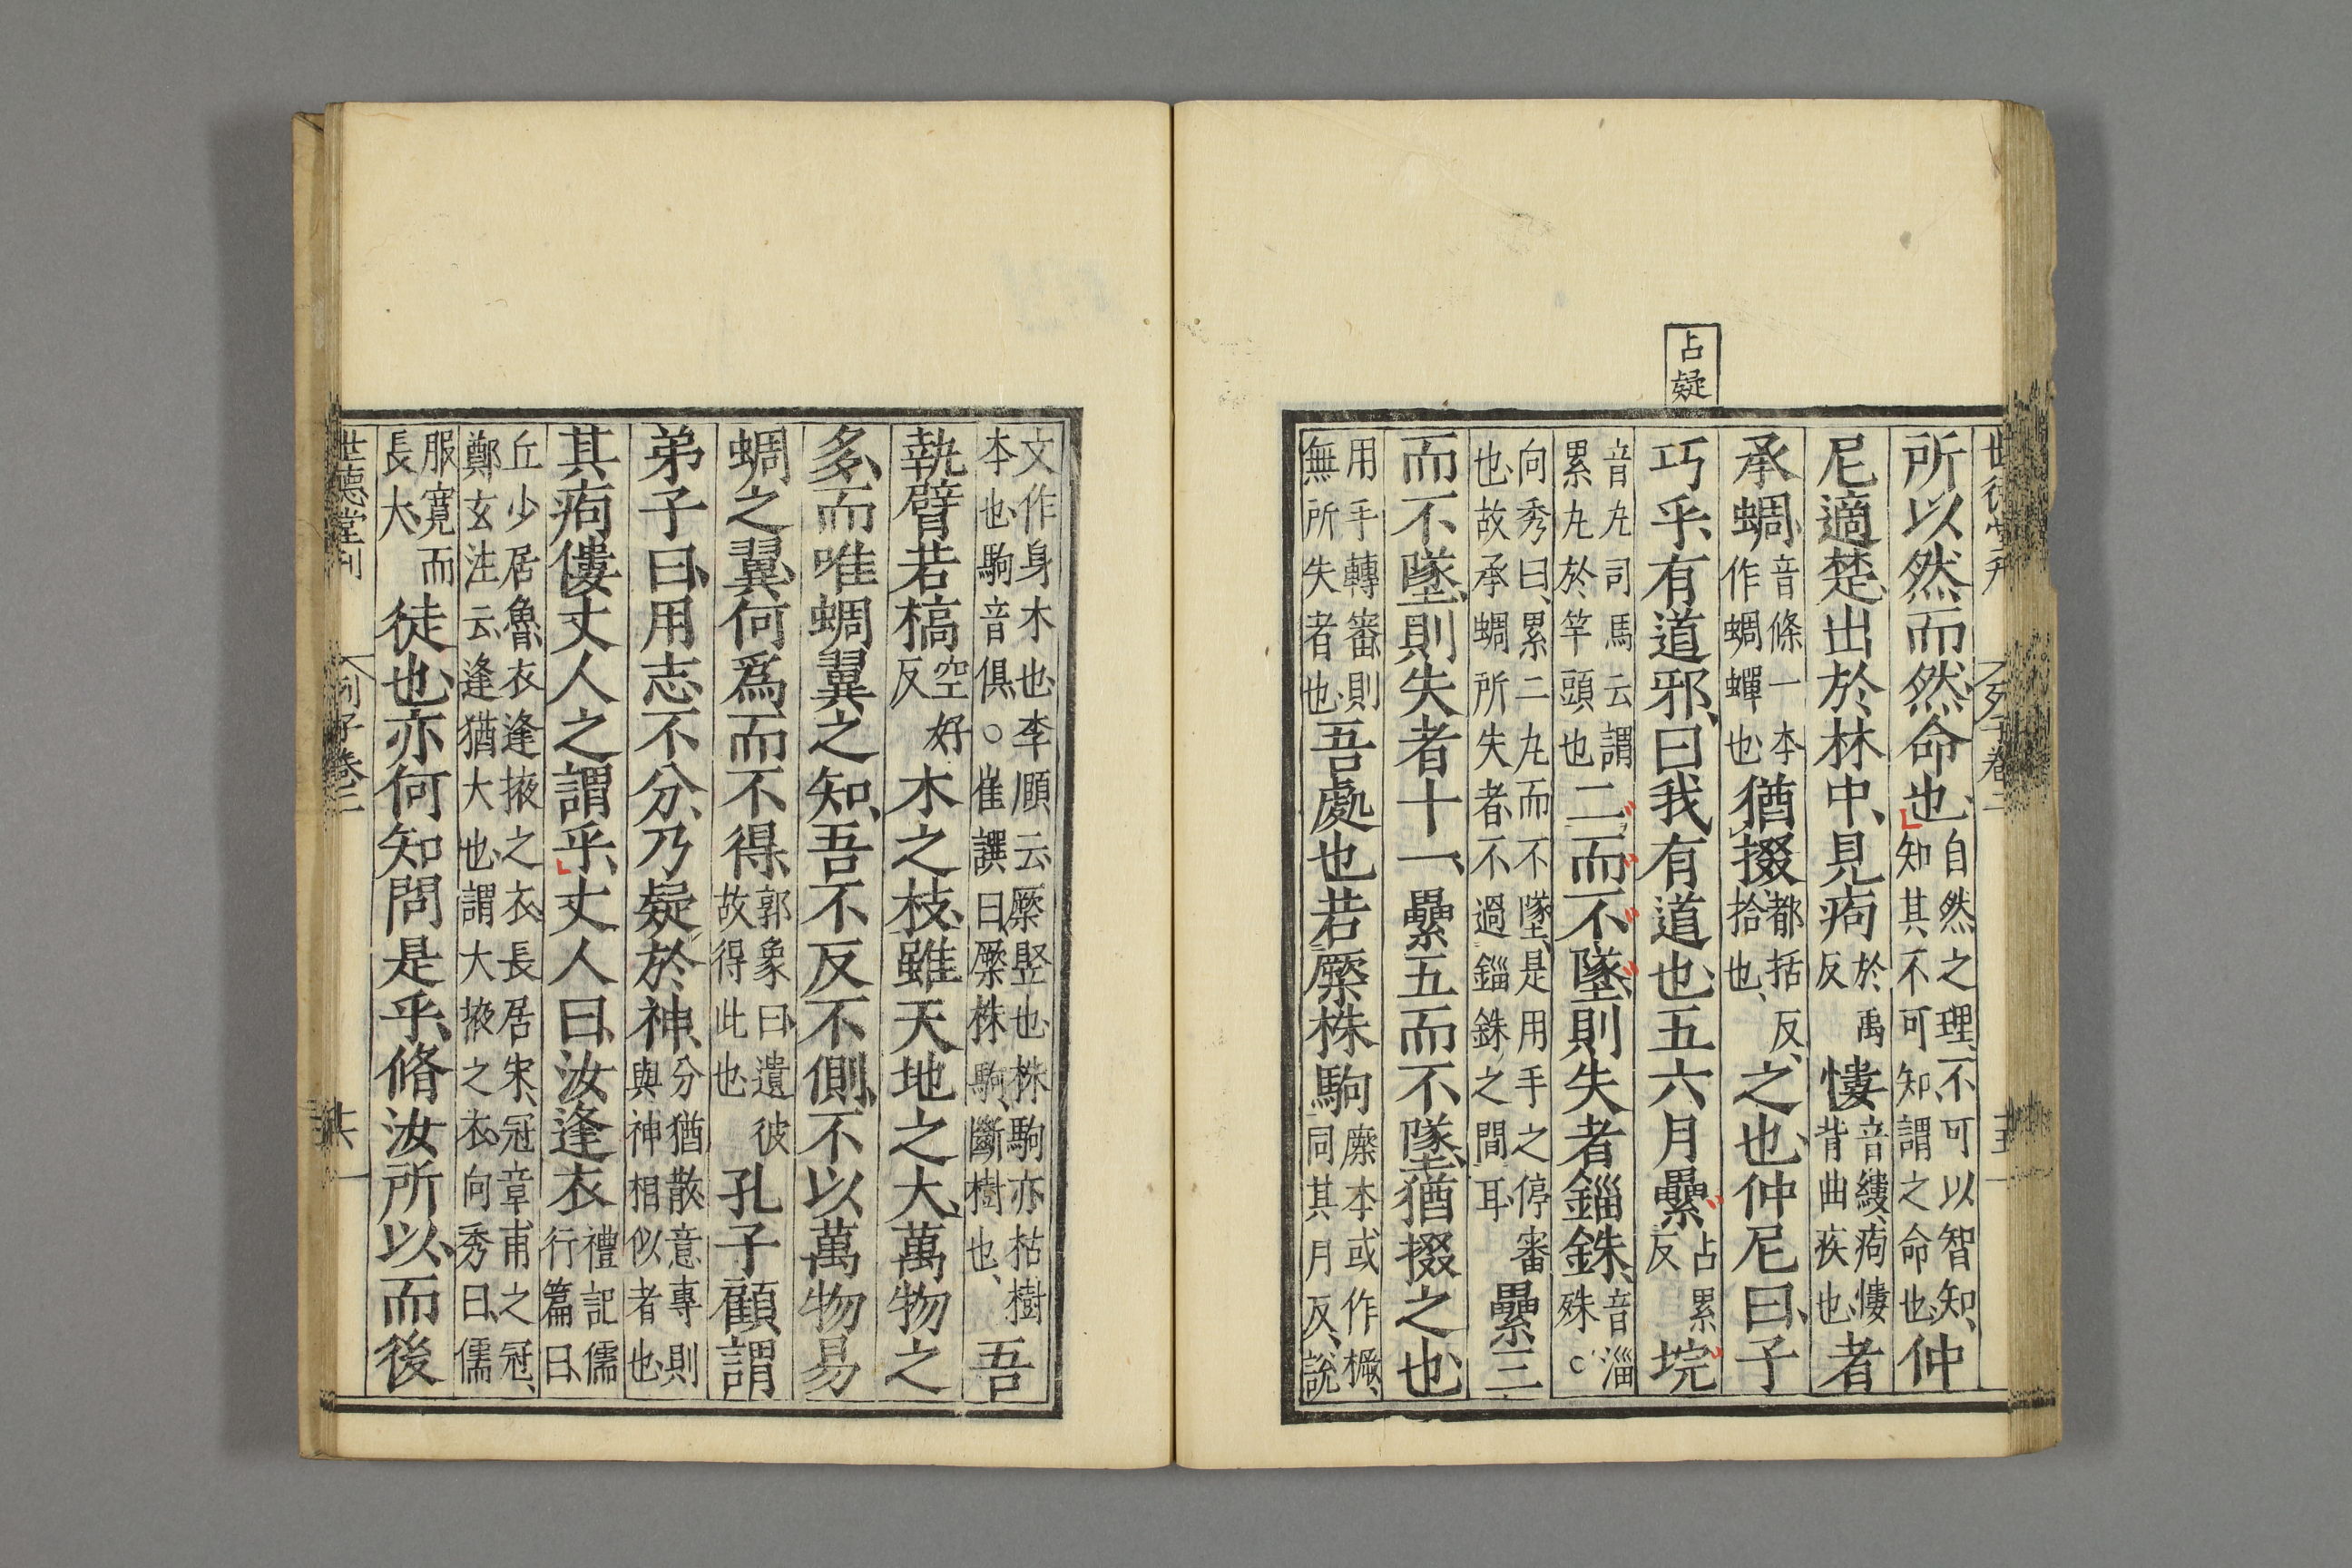 占疑
所以然而然命也自然之理不可以智知知其不可知謂之命也仲
尼適楚出於林中見痀於禹反慺音縷痀慺背曲疾也者
承蜩音條一本作蜩蟬也猶掇都括反拾也之也仲尼曰子
巧乎有道邪曰我有道也五六月纍占累反垸
音丸司馬云謂累丸於竿頭也二而不墜則失者錙銖音淄殊○
向秀曰累二丸而不墜是用手之停審也故承蜩所失者不過錙銖之間耳纍三
而不墜則失者十一纍五而不墜猶掇之也
用手轉審則無所失者也吾處也若橜株駒橜本或作橛同其月反說
文作身木也李頤云橜竪也株駒亦枯樹本也駒音俱○崔譔曰橜株駒斷樹也吾
執臂若槁空好反木之枝雖天地之大萬物之
多而唯蜩翼之知吾不反不側不以萬物易
蜩之翼何爲而不得郭象曰遺彼故得此也孔子顧謂
弟子曰用志不分乃疑於神分猶散意專則與神相似者也
其痀僂丈人之謂乎丈人曰汝逢衣禮記儒行篇曰
丘少居魯衣逢掖之衣長居宋冠章甫之冠鄭玄注云逢猶大也謂大掖之衣向秀曰儒
服寬而長大徒也亦何知問是乎脩汝所以而後
世德堂刊 列子卷二 十六